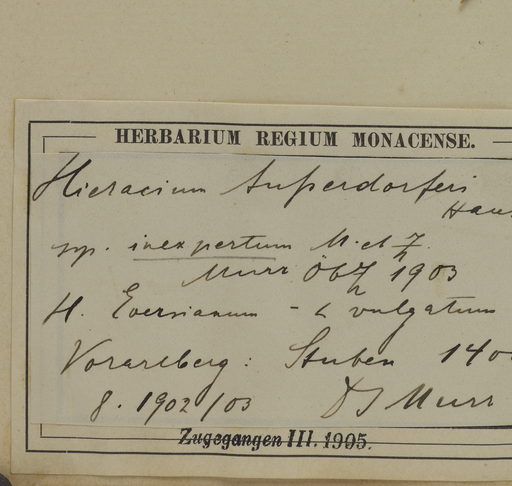 HERBARIUM REGIUM MONACENSE.
Hieracium Außerdorferi
Haus
ssp. inexpertum M. et Z.
Murr ÖbZ 1903
H. Eversianum - < vulgatum
Vorarlberg: Stuben 140
8. 1902/03 Dr J Murr
Zugegangen III. 1905.